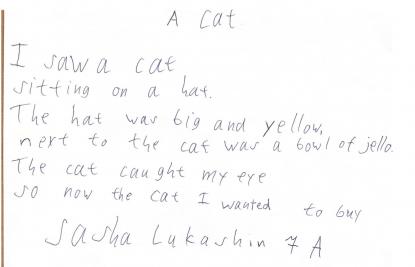 A cat
I saw a cat
sitting on a hat.
The hat was big and yellow,
next to the cat was a bowl of jello.
The cat caught my eye
so now the cat I wanted to buy
Sasha Lukashin 7 A